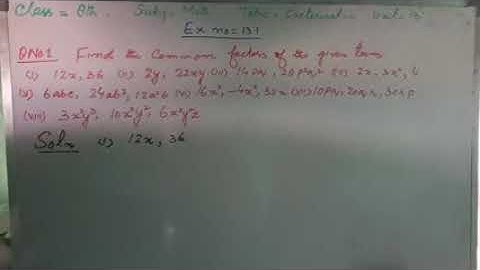 Class = 8th. Subj = Mth Topic = Factorisation Unit
Ex no = 13.1
QNo1 Find the Common factors of the given terms
(i) 12x, 36 (ii) 2y, 22xy (iii) 14pq, 28p²q² (iv) 2x, 3x², 4
(v) 6abc, 24ab², 12a²b (vi) 16x³, -4x², 32x (vii) 10pq, 20qr, 30rp
(viii) 3x²y³, 10x³y², 6x²y²z
Soln (i) 12x, 36